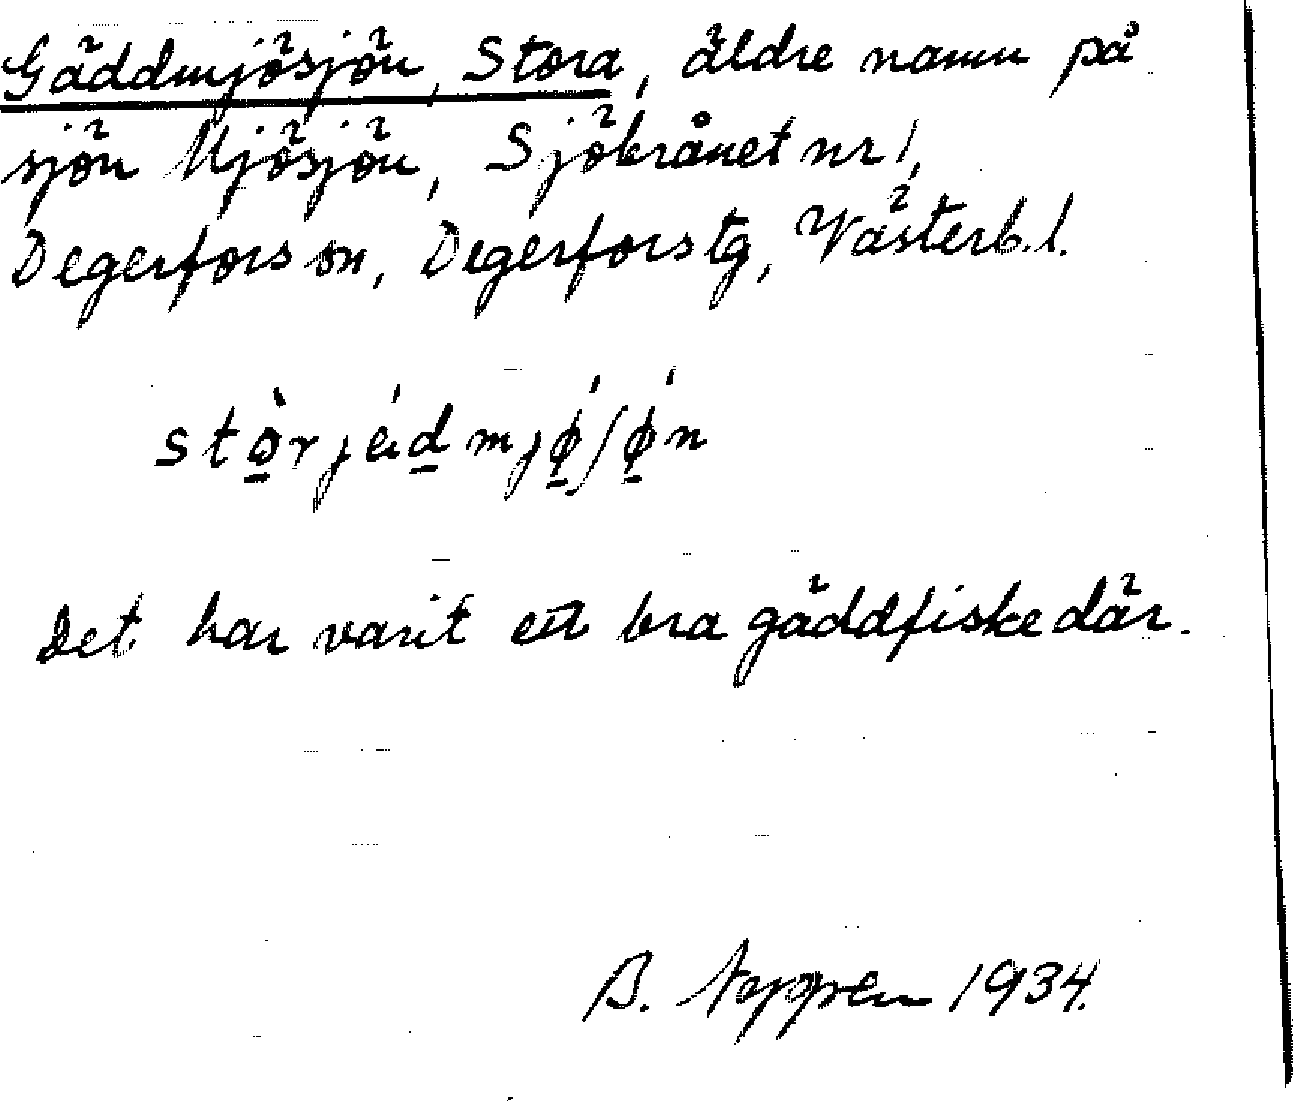 Gäddmjösjön, Stora, äldre namn på
sjön Mjösjön, Sjöbrånet nr 1,
Degerfors sn, Degerfors tg, Västerb. l.
stòrjéidmjǿʃǿn
Det har varit ett bra gäddfiske där.
B. 1934.